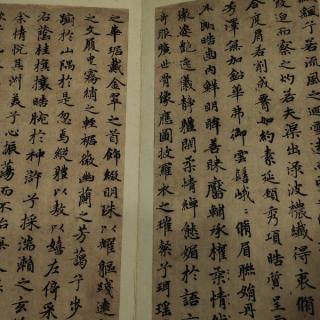 若流風之
迫而察之灼若夫渠出淥波穠纖得衷脩
合度肩若削成如約素延頸秀項皓質呈
芳澤無加鉛華弗御雲髻峨峨脩眉聯娟丹
朗皓齒內鮮明眸善睞靨輔承權柔情
姿艷逸儀靜體閑柔情綽態媚於語言
奇服曠世骨像應圖披羅衣之璀粲兮珥瑤
之華琚戴金翠之首飾綴明珠以耀軀踐遠
之文履曳霧綃之輕裾微幽蘭之芳藹兮步
於山隅於是忽焉縱體以敖以嬉左倚采
右蔭桂旗攘皓腕於神滸兮採湍瀨之玄
余情悅其淑美兮心振蕩而不怡